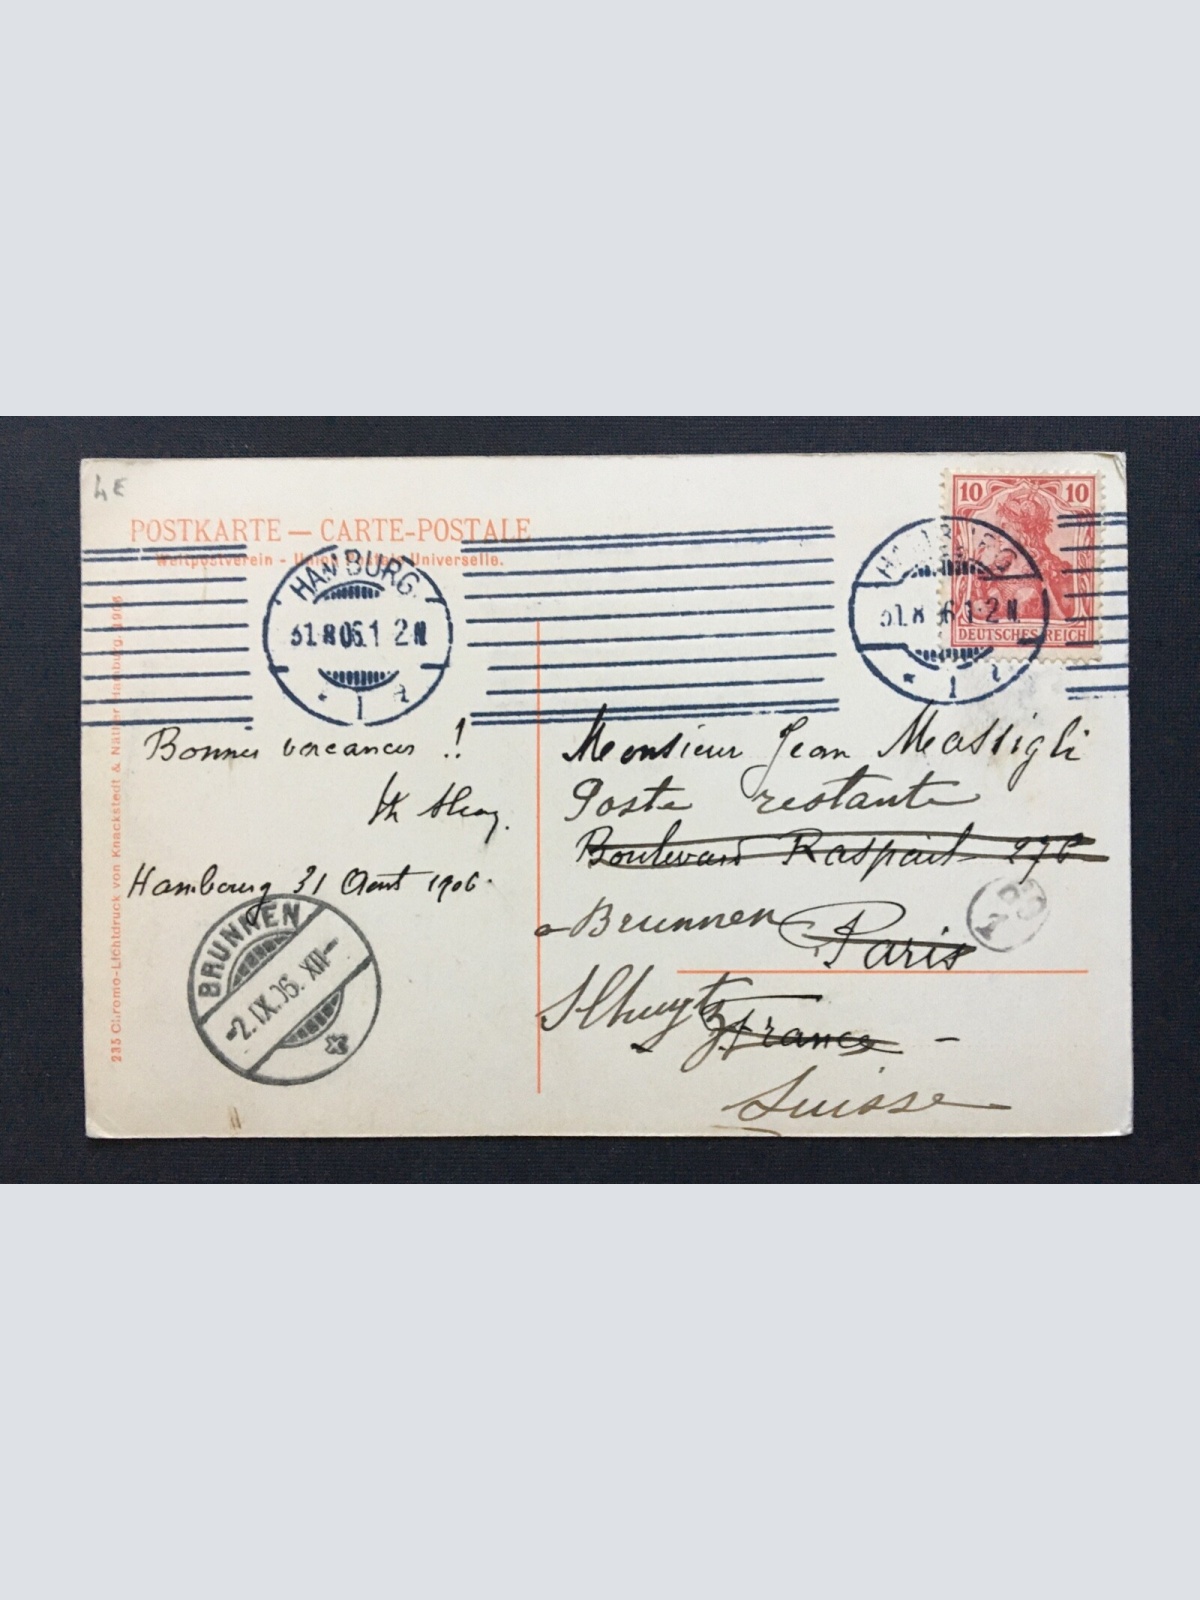 4E
POSTKARTE — CARTE-POSTALE
Weltpostverein - Union Postale Universelle.
HAMBURG.
31.8.06.1 2 N
* 1 a
HAMBURG
31.8 06 1-2 N.
* 1
10 10
DEUTSCHES REICH
235 Chromo-Lichtdruck von Knackstedt & Näther Hamburg. 1905
Bonnes vacances !!
Hambourg 31 Aout 1906.
BRUNNEN
-2.IX.06. XII-
Monsieur Jean Massigli
Poste restante
Boulevard Raspail 276
a Brunnen Paris
Schwytz France -
Suisse